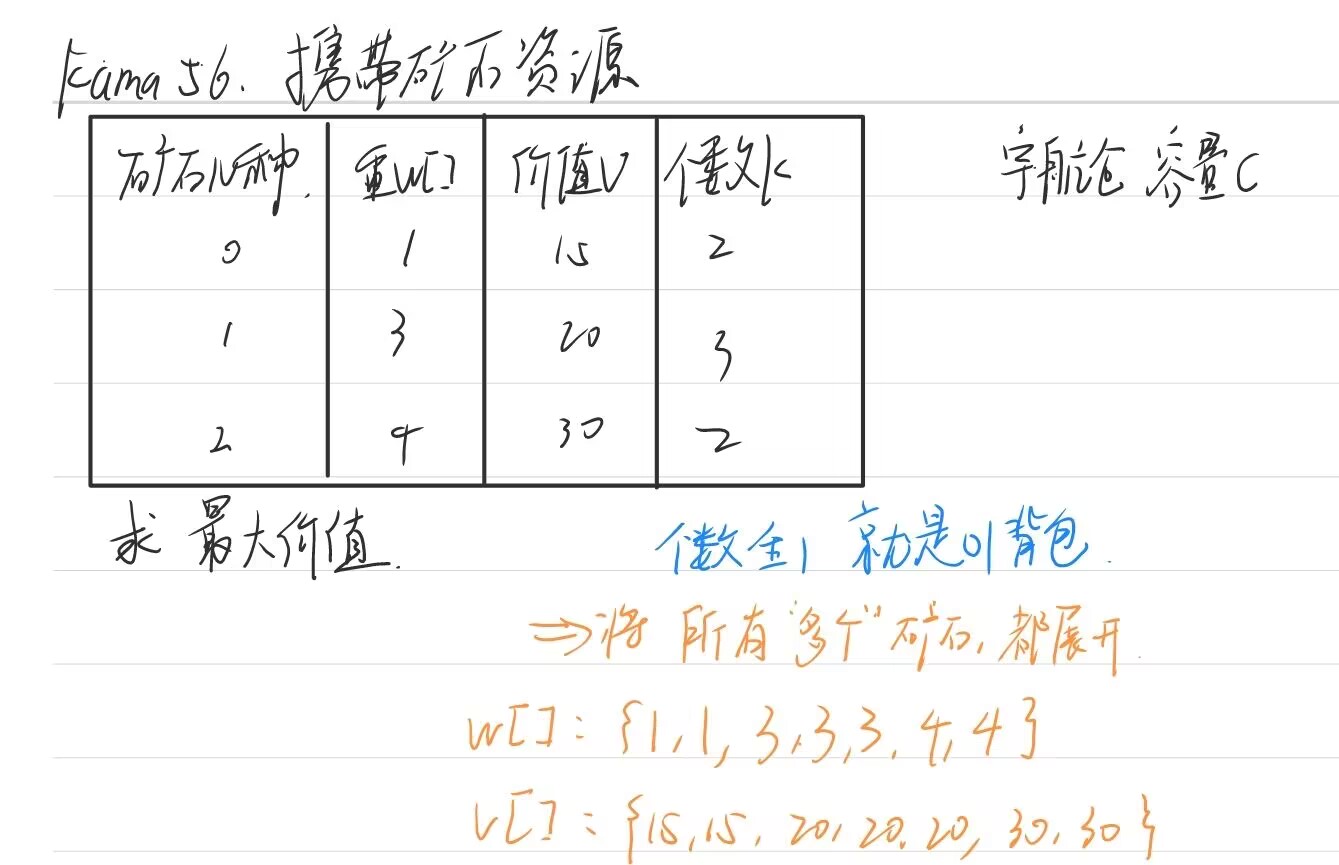 kama 56. 携带矿石资源
矿石N种. 重W[] 价值V 个数k 宇航仓 容量C
0 1 15 2
1 3 20 3
2 4 30 2
求 最大价值.
个数全1 就是01背包.
⇒将 所有"多个"矿石, 都展开.
W[]: {1,1,3,3,3,4,4}
V[]: {15,15,20,20,20,30,30}